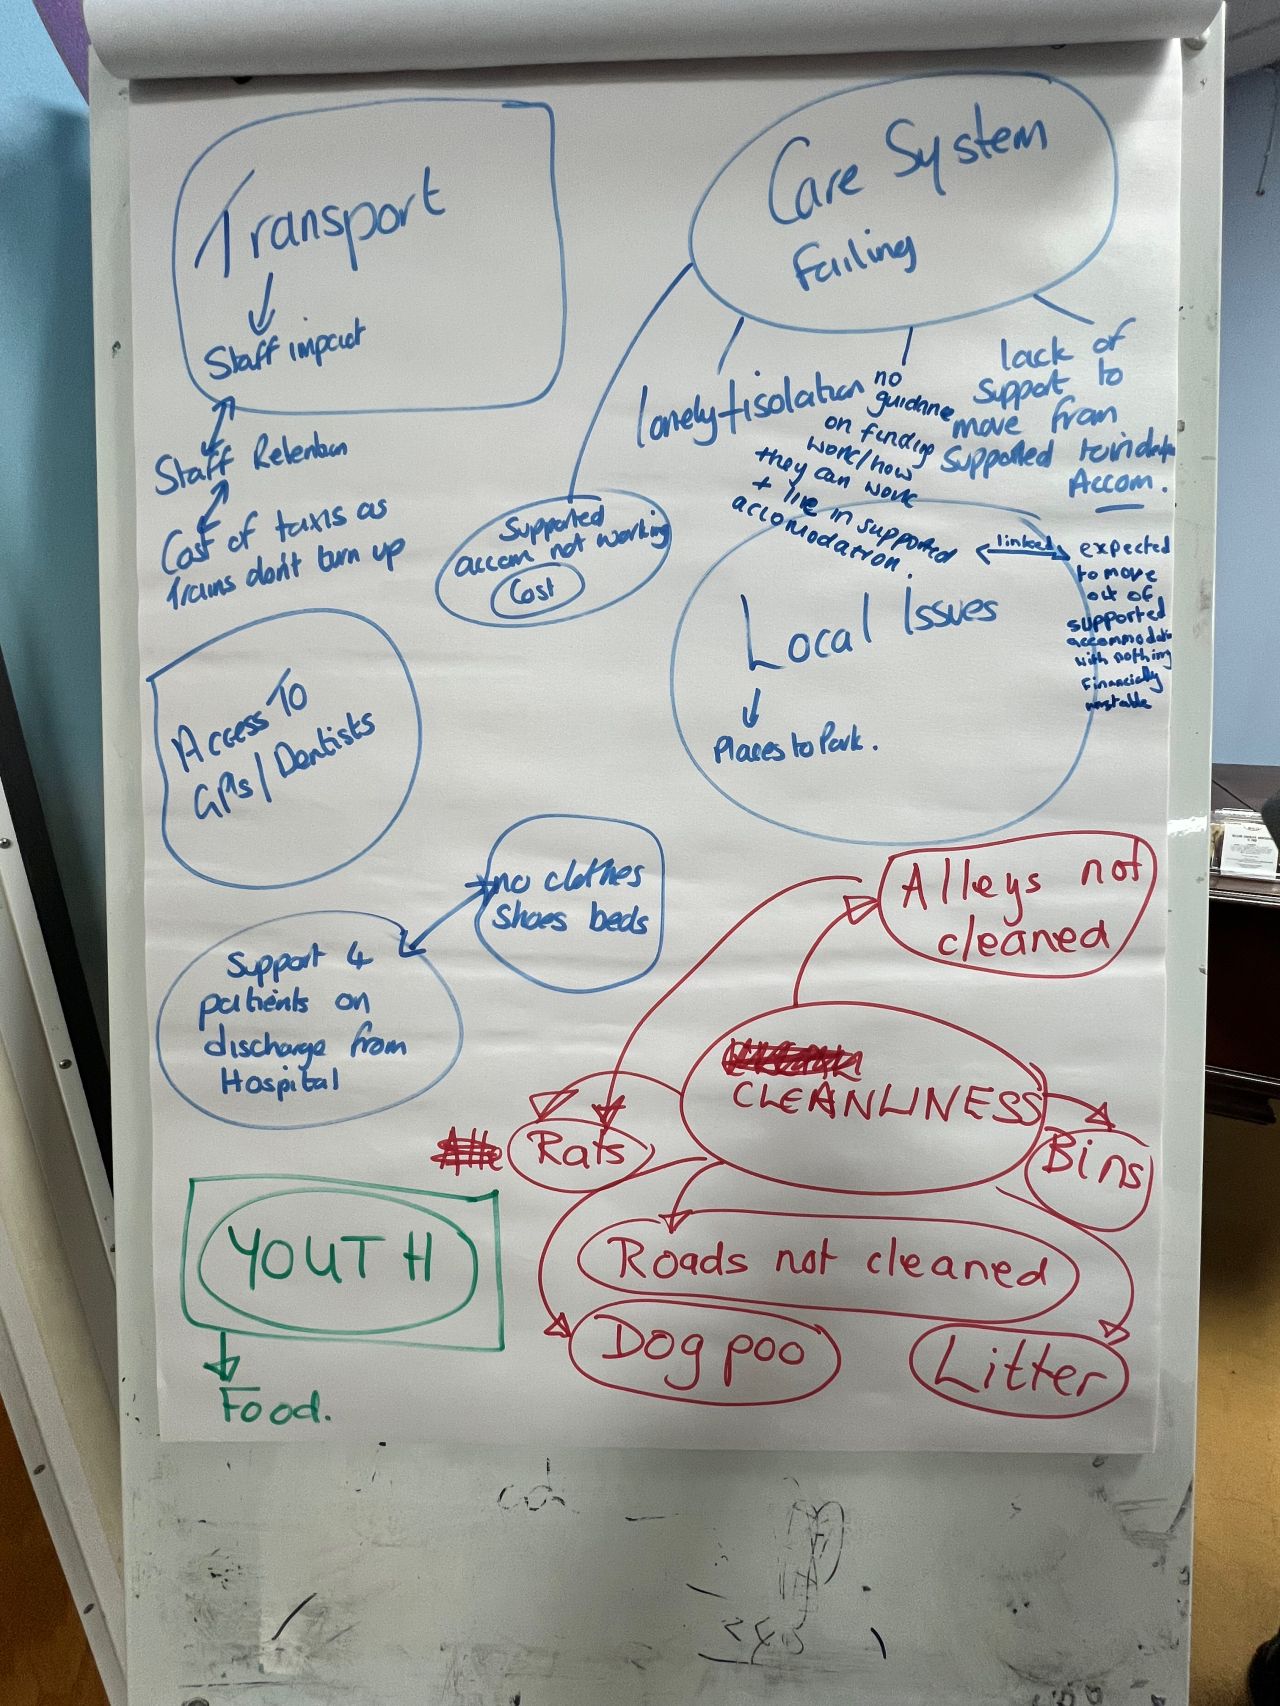 Transport
Staff impact
Staff Retention
Cost of taxis as
Trains don't turn up
Care System
Failing
lonely + isolation
no
guidance
on funding
work/how
they can work
+ live in supported
accomodation.
lack of
support to
move from
supported to
Accom.
Supported
accom not working
Cost
linked
expected
to move
out of
supported
with nothing
Financially
unstable
Local Issues
Places to Park.
Access To
GPs/Dentists
no clothes
shoes beds
Support 4
patients on
discharge from
Hospital
Alleys not
cleaned
CLEANLINESS
Rats
Bins
Roads not cleaned
Dog poo
Litter
YOUTH
Food.